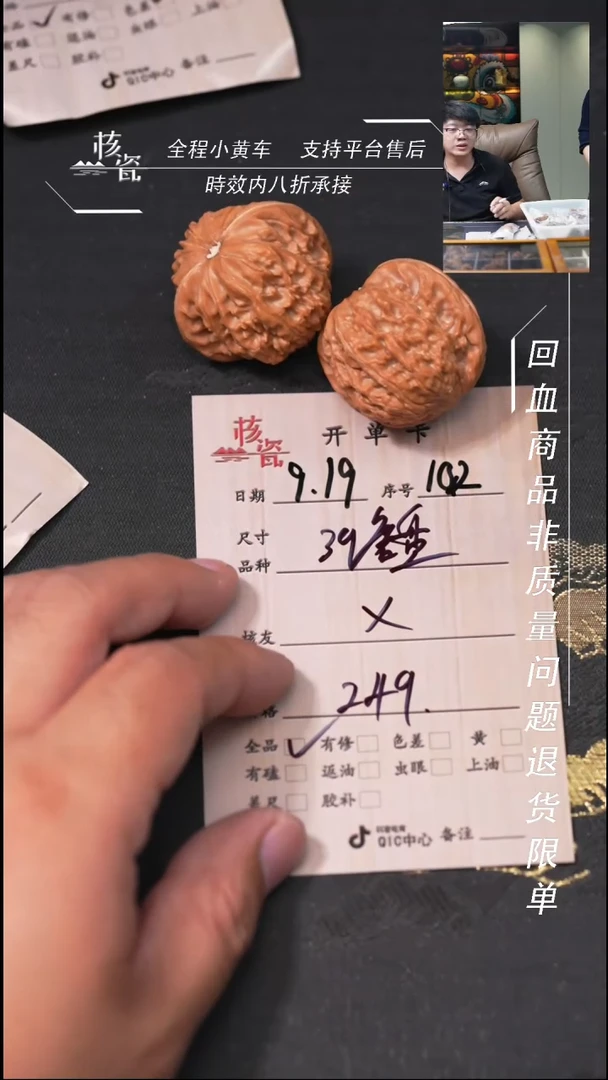 品 有修 色差
有磕 返油 虫眼 上油
差尺 胶补
QIC中心 备注
核瓷
全程小黄车 支持平台售后
時效内八折承接
回血商品非质量问题退货限单
核瓷
开单卡
日期 9.19 序号 102
尺寸
品种 39
核友 X
格 249.
全品 ✓ 有修 色差 黄
有磕 返油 虫眼 上油
差尺 胶补
抖音电商
QIC中心 备注